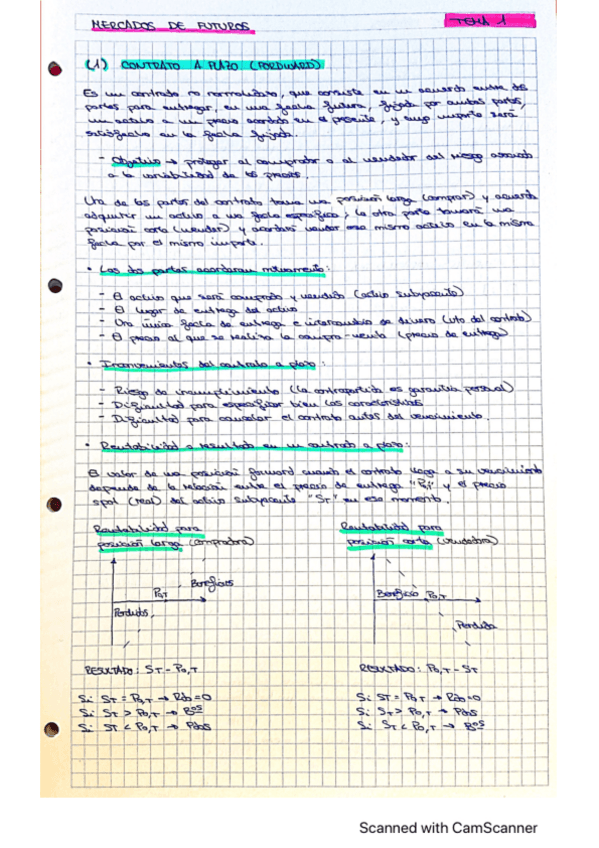 MERCADOS DE FUTUROS
TEMA 1
(1) CONTRATO A PLAZO (FORDWARD)
Es un contrato no normalizado, que consiste en un acuerdo entre dos
partes para entregar, en una fecha futura, fijada por ambas partes,
un activo a un precio acordado en el presente, y cuyo importe será
satisfecho en la fecha fijada.
- Objetivo → proteger al comprador o al vendedor del riesgo asociado
a la variabilidad de los precios.
Una de las partes del contrato toma una posición larga (comprar) y acuerda
adquirir un activo a una fecha específica; la otra parte tomará una
posición corta (vender) y acordará vender ese mismo activo en la misma
fecha por el mismo importe.
• Las dos partes acordaran mutuamente:
- El activo que será comprado y vendido (activo subyacente)
- El lugar de entrega del activo
- Una única fecha de entrega e intercambio de dinero (vto del contrato)
- El precio al que se realiza la compra-venta (precio de entrega)
• Inconvenientes del contrato a plazo:
- Riesgo de incumplimiento (la contrapartida es garantía personal)
- Dificultad para especificar bien las características
- Dificultad para cancelar el contrato antes del vencimiento.
• Rentabilidad o resultado en un contrato a plazo:
El valor de una posición forward cuando el contrato llega a su vencimiento
depende de la relación entre el precio de entrega "P0,T" y el precio
spot (real) del activo subyacente "ST" en ese momento.
Rentabilidad para
posición larga (compradora)
Beneficios
P0,T
Perdidas
RESULTADO: ST - P0,T
Si ST = P0,T → Rdo=0
Si ST > P0,T → Bos
Si ST < P0,T → Pdas
Rentabilidad para
posición corta (vendedora)
Beneficio P0,T
Perdida
RESULTADO: P0,T - ST
Si ST = P0,T → Rdo=0
Si ST > P0,T → Pdas
Si ST < P0,T → Bos
Scanned with CamScanner